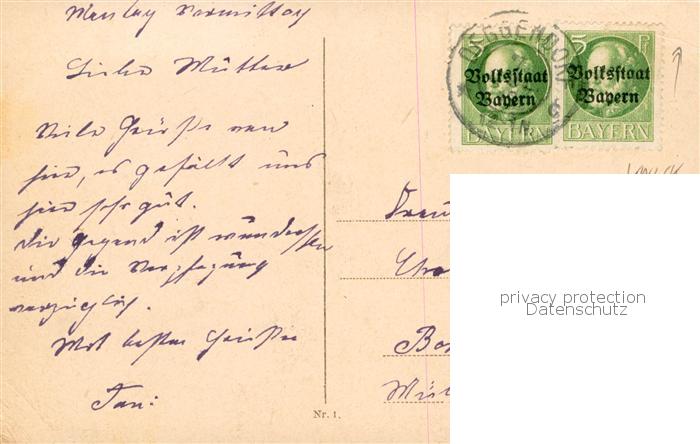 Montag Vormittag
Liebe Mutter
Viele Grüße von
hier, es gefällt uns
hier sehr gut.
Die Gegend ist wunderschön
und die Verpflegung
vorzüglich.
Mit besten Grüßen
Toni
DEGGENDORF
5 Pf
Volksstaat
Bayern
BAYERN
Volksstaat
Bayern
BAYERN
Frau
privacy protection
Datenschutz
Nr. 1.